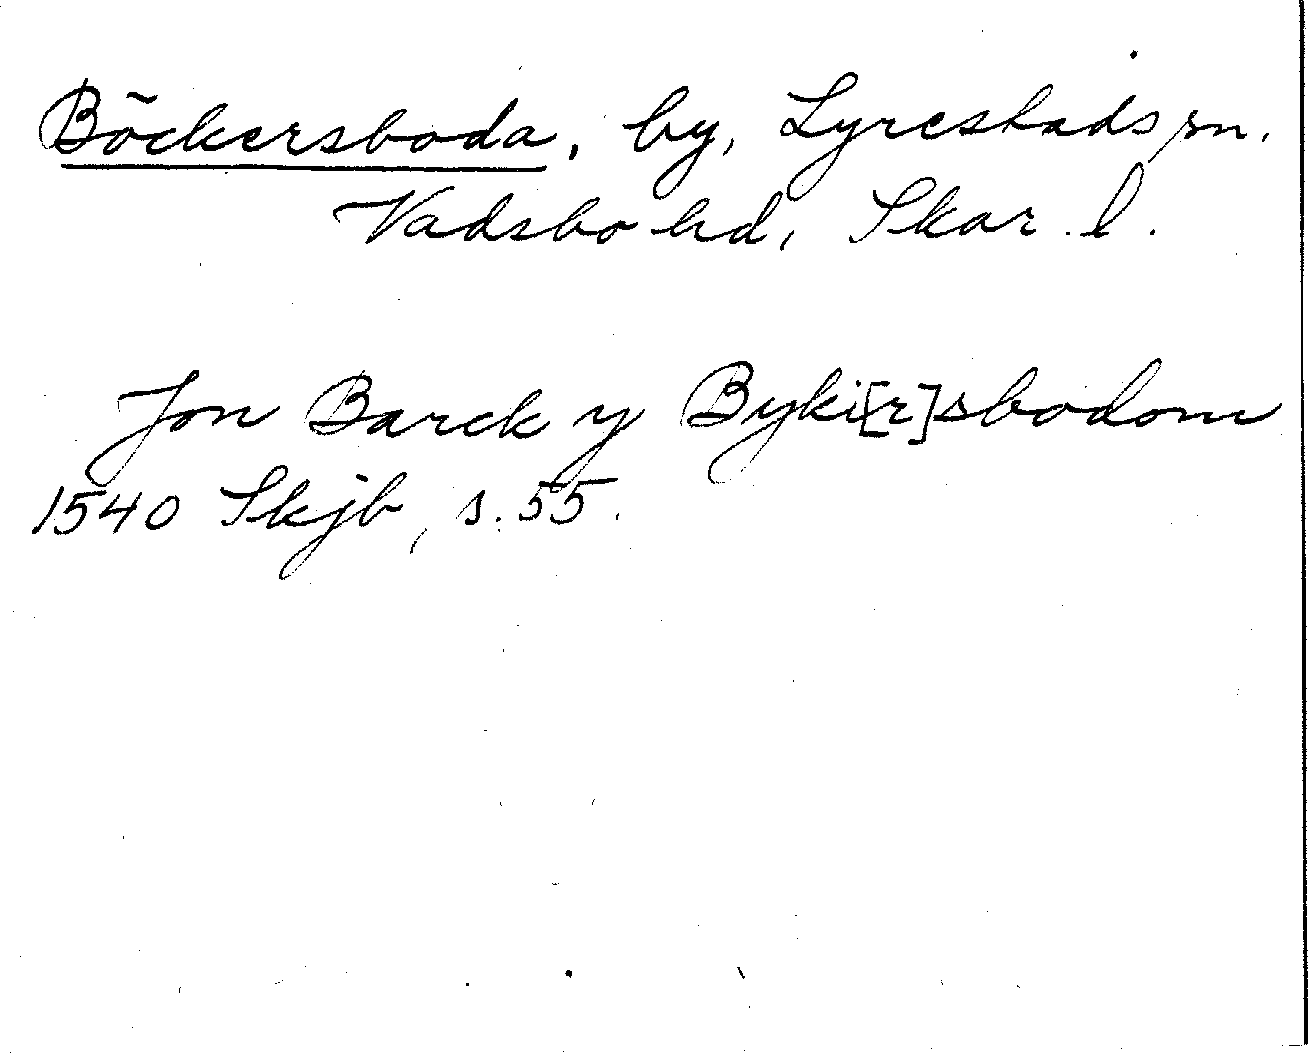 Böckersboda, by, Lyrestads sn.
Vadsbo hd, Skar. l.
Jon Barck y Byki[r]sbodom
1540 Skjb, s. 55.